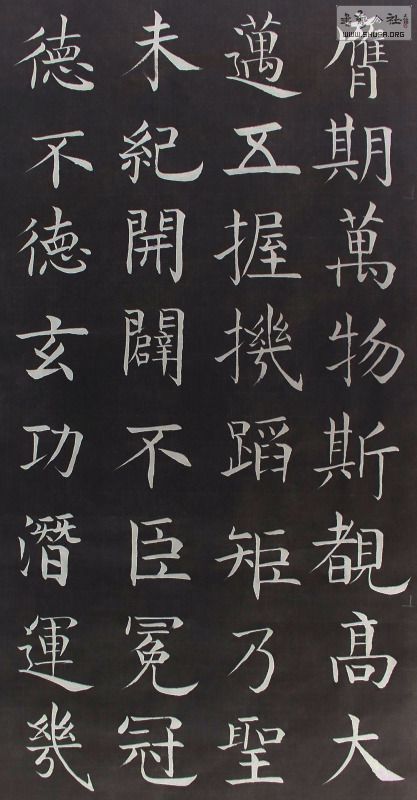 膺期萬物斯覩髙大
邁五握機蹈矩乃聖
未紀開闢不臣冕冠
德不德玄功潛運幾
WWW.SHUFA.ORG